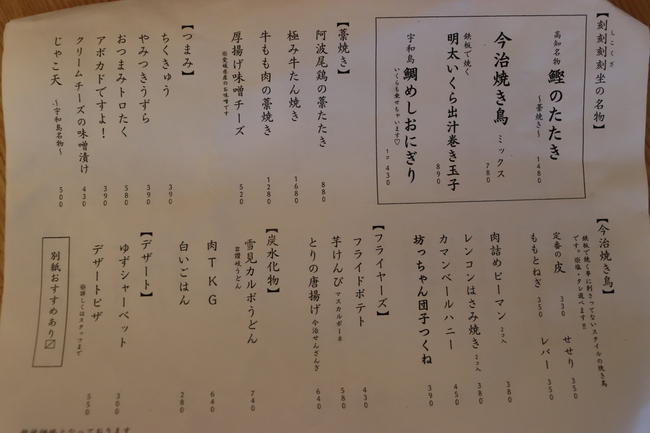 【刻刻刻刻坐の名物】
しこくざ
高知名物 鰹のたたき
~藁焼き~ 1480
今治焼き鳥 ミックス 780
鉄板で焼く
明太いくら出汁巻き玉子 890
宇和島 鯛めしおにぎり 1コ 430
いくらも乗せちゃいます♡
【藁焼き】
阿波尾鶏の藁たたき 880
極み牛たん焼き 1680
牛もも肉の藁焼き 1280
厚揚げ味噌チーズ 520
※愛媛県産のお味噌です
【つまみ】
ちくきゅう 390
やみつきうずら 390
おつまみトロたく 580
アボカドですよ! 390
クリームチーズの味噌漬け 430
じゃこ天 ~宇和島名物~ 500
【今治焼き鳥】
鉄板で焼く串に刺さってないスタイルの焼き鳥
です。※塩・タレ選べます!!
定番の皮 330
せせり 350
ももとねぎ 350
レバー 350
肉詰めピーマン 2コ入 380
レンコンはさみ焼き 2コ入 380
カマンベールハニー 450
坊っちゃん団子つくね 390
【フライヤーズ】
フライドポテト 430
芋けんぴ マスカルポーネ 580
とりの唐揚げ 今治せんざんぎ 640
【炭水化物】
雪見カルボうどん 740
※讃岐うどん
肉TKG 640
白いごはん 280
【デザート】
ゆずシャーベット 300
デザートピザ 550
※詳しくはスタッフまで
別紙おすすめあり〼